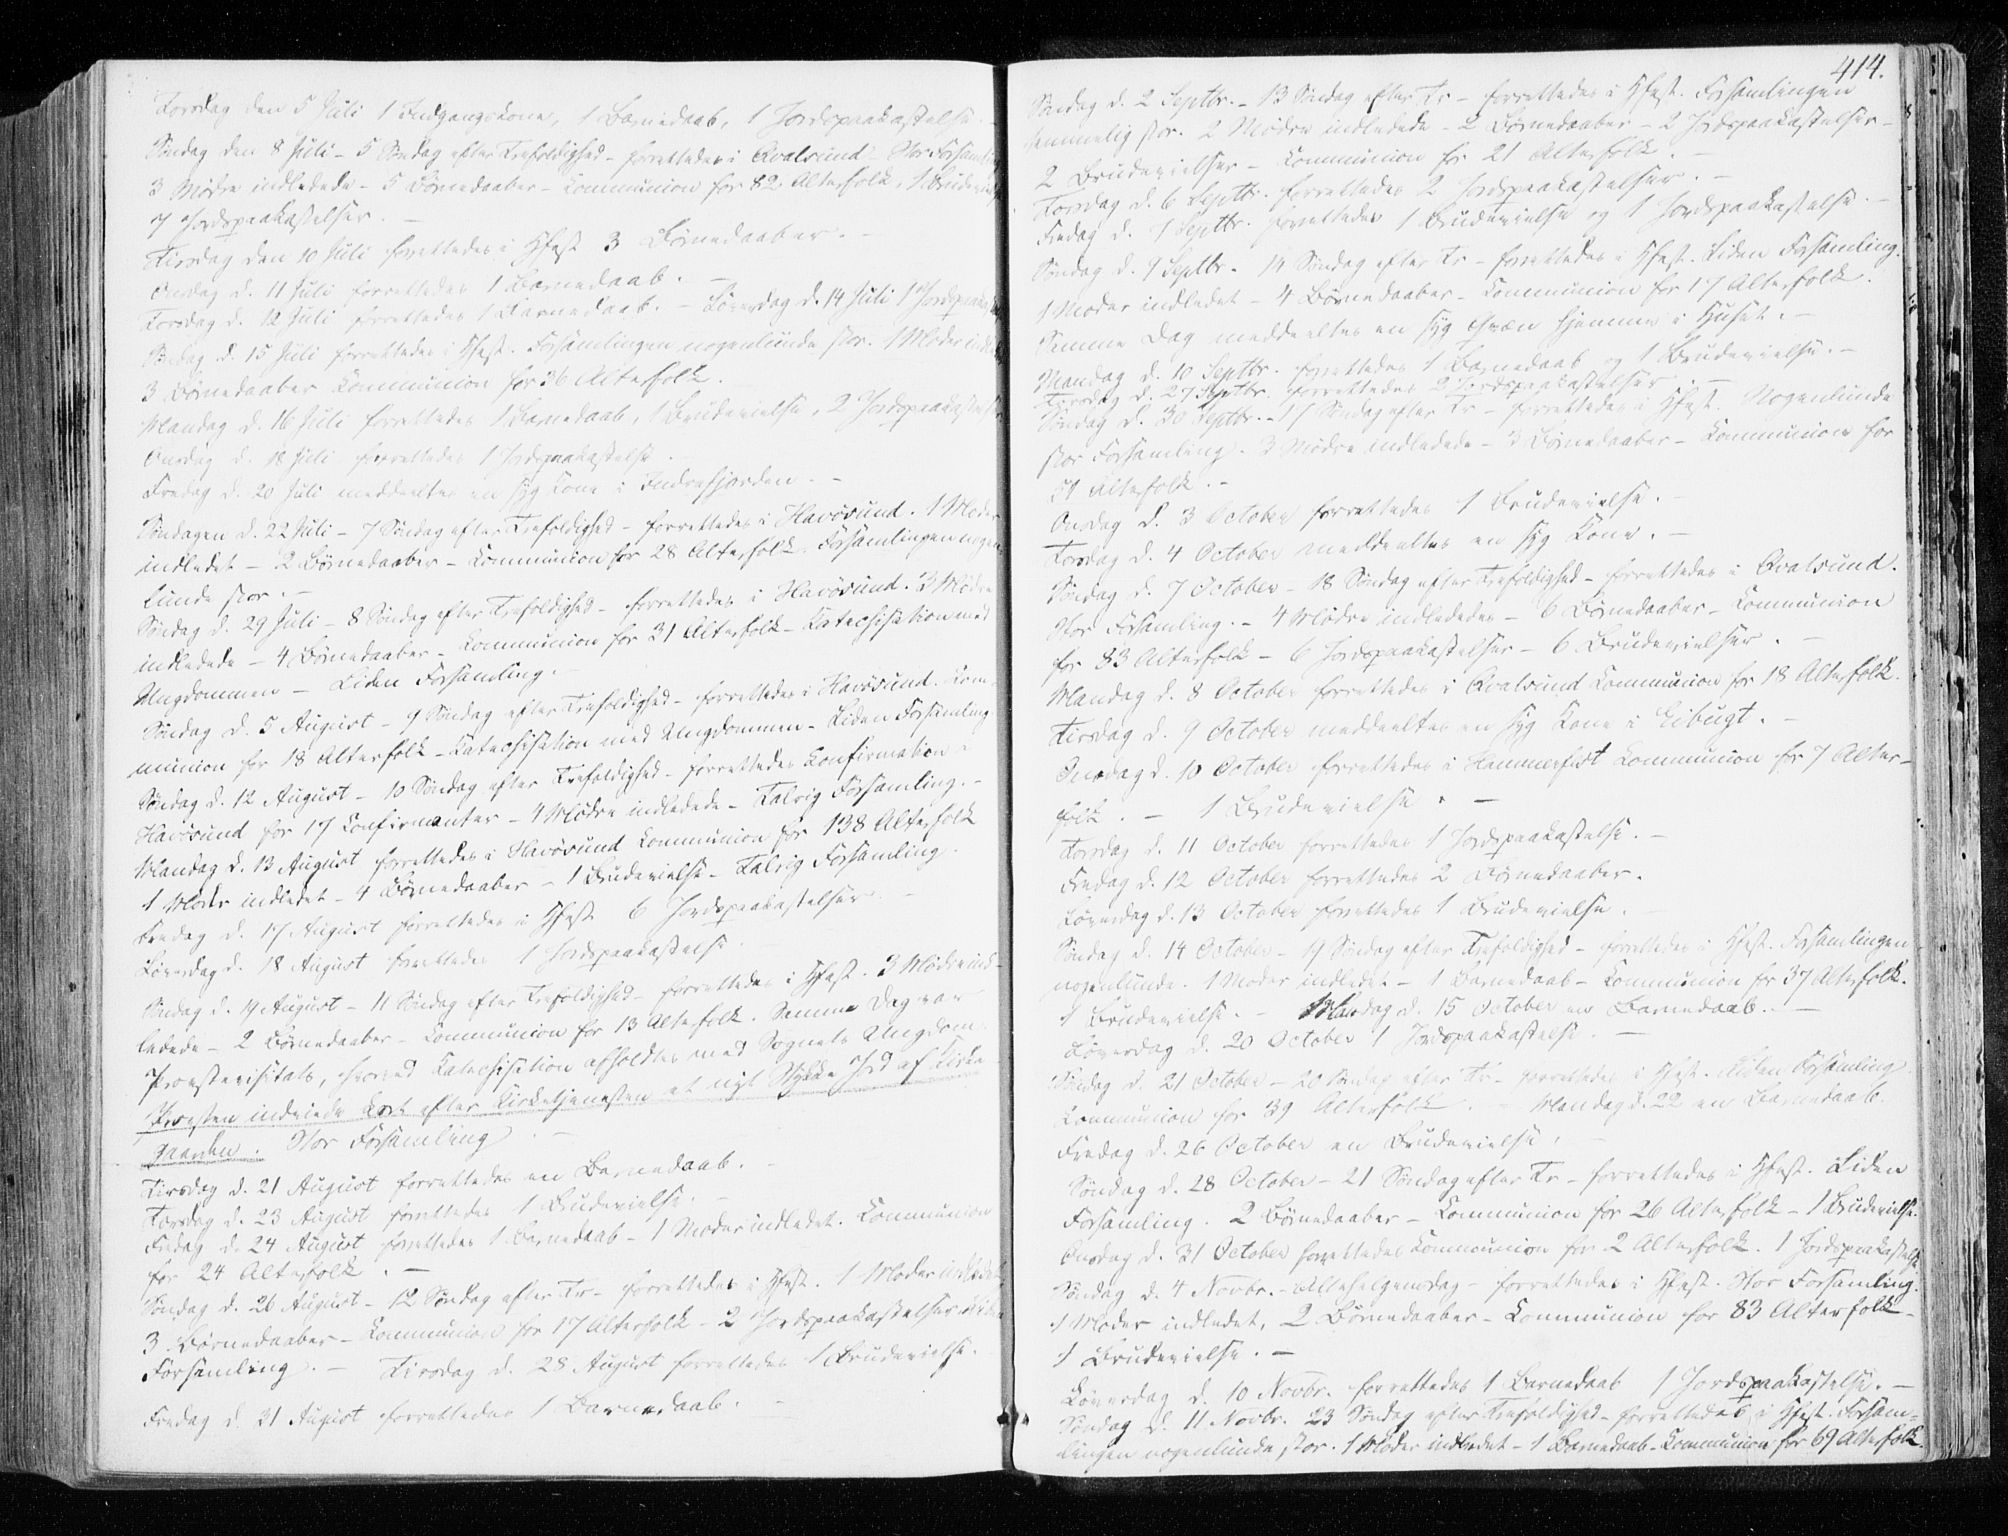 Torsdag den 5 Juli 1 Indgangskone, 1 Barnedaab, 1 Jordspaakastelse.
Søndag den 8 Juli - 5 Søndag efter Trefoldighed - forrettedes i Qvalsund - Stor Forsamling
3 Mødre indledede - 5 Børnedaaber - Communion for 82 Alterfolk, 1 Brudevielse
7 Jordspaakastelser. -
Tirsdag den 10 Juli forrettedes i Hfest 3 Børnedaaber. -
Onsdag d. 11 Juli forrettedes 1 Barnedaab. -
Torsdag d. 12 Juli forrettedes 1 Barnedaab. - Løverdag d. 14 Juli 1 Jordspaakastelse
Søndag d. 15 Juli forrettedes i Hfest. Forsamlingen nogenlunde stor. 1 Moder indledet
3 Børnedaaber Communion for 36 Alterfolk.
Mandag d. 16 Juli forrettedes 1 Barnedaab, 1 Brudevielse, 2 Jordspaakastelser
Onsdag d. 18 Juli forrettedes 1 Jordspaakastelse.
Fredag d. 20 Juli meddeeltes en syg Kone i Indrefjorden. -
Søndagen d. 22 Juli - 7 Søndag efter Trefoldighed - forrettedes i Havøsund. 1 Moder
indledet - 2 Børnedaaber - Communion for 28 Alterfolk. Forsamlingen nogen-
lunde stor. -
Søndag d. 29 Juli - 8 Søndag efter Trefoldighed - forrettedes i Havøsund. 3 Mødre
indledede - 4 Børnedaaber - Communion for 31 Alterfolk - Katechisation med
Ungdommen - Liden Forsamling.
Søndag d. 5 August - 9 Søndag efter Trefoldighed - forrettedes i Havøsund. Com-
munion for 18 Alterfolk - Katechisation med Ungdommen - Liden Forsamling
Søndag d. 12 August - 10 Søndag efter Trefoldighed - forrettedes Confirmation i
Havøsund for 17 Confirmanter - 4 Mødre indledede - Talrig Forsamling. -
Mandag d. 13 August forrettedes i Havøsund Communion for 138 Alterfolk
1 Moder indledet - 4 Børnedaaber - 1 Brudevielse - Talrig Forsamling.
Fredag d. 17 August forrettedes i Hfest 6 Jordspaakastelser. -
Løverdag d. 18 August forrettedes 1 Jordspaakastelse.
Søndag d. 19 August - 11 Søndag efter Trefoldighed - forrettedes i Hfest. 3 Mødre ind-
ledede - 2 Børnedaaber - Communion for 13 Alterfolk. Samme Dag var
Provstevisitats, hvorved Katechisation afholdtes med Sognets Ungdom.
Provsten indviede kort efter Kirketjenesten et nyt Stykke Jord af Kirke-
gaarden. Stor Forsamling. -
Tirsdag d. 21 August forrettedes en Barnedaab. -
Torsdag d. 23 August forrettedes 1 Brudevielse. -
Fredag d. 24 August forrettedes 1 Barnedaab - 1 Moder indledet. Communion
for 24 Alterfolk. -
Søndag d. 26 August - 12 Søndag efter Tr - forrettedes i Hfest. 1 Moder indledet
3 Børnedaaber - Communion for 17 Alterfolk - 2 Jordspaakastelser. Liden
Forsamling. - Tirsdag d. 28 August forrettedes 1 Brudevielse.
Fredag d. 31 August forrettedes 1 Barnedaab. -
414.
Søndag d. 2 Septbr. - 13 Søndag efter Tr - forrettedes i Hfest. Forsamlingen
temmelig stor. 2 Mødre indledede - 2 Børnedaaber - 2 Jordspaakastelser -
2 Brudevielser - Communion for 21 Alterfolk. -
Torsdag d. 6 Septbr. forrettedes 2 Jordspaakastelser. -
Fredag d. 7 Septbr. forrettedes 1 Brudevielse og 1 Jordspaakastelse. -
Søndag d. 9 Septbr. 14 Søndag efter Tr - forrettedes i Hfest. Liden Forsamling.
1 Moder indledet - 4 Børnedaaber - Communion for 17 Alterfolk.
Samme Dag meddeeltes en syg Qvæn hjemme i Huset. -
Mandag d. 10 Septbr. forrettedes 1 Barnedaab og 1 Brudevielse. -
Torsdag d. 27 Septbr. forrettedes 2 Jordspaakastelser. -
Søndag d. 30 Septbr. - 17 Søndag efter Tr - forrettedes i Hfest. Nogenlunde
stor Forsamling. 3 Mødre indledede - 3 Børnedaaber - Communion for
51 Alterfolk. -
Onsdag d. 3 October forrettedes 1 Brudevielse. -
Torsdag d. 4 October meddeeltes en syg Kone. -
Søndag d. 7 October - 18 Søndag efter Trefoldighed - forrettedes i Qvalsund.
Stor Forsamling. - 4 Mødre indledede - 6 Børnedaaber - Communion
for 83 Alterfolk - 6 Jordspaakastelser - 6 Brudevielser. -
Mandag d. 8 October forrettedes i Qvalsund Communion for 18 Alterfolk.
Tirsdag d. 9 October meddeeltes en syg Kone i Eibugt. -
Onsdag d. 10 October forrettedes i Hammerfest Communion for 7 Alter-
folk. - 1 Brudevielse. -
Torsdag d. 11 October forrettedes 1 Jordspaakastelse. -
Fredag d. 12 October forrettedes 2 Børnedaaber.
Løverdag d. 13 October forrettedes 1 Brudevielse. -
Søndag d. 14 October - 19 Søndag efter Trefoldighed - forrettedes i Hfest. Forsamlingen
nogenlunde. 1 Moder indledet - 1 Barnedaab - Communion for 37 Alterfolk.
1 Brudevielse. - Mandag d. 15 October en Barnedaab. -
Løverdag d. 20 October 1 Jordspaakastelse. -
Søndag d. 21 October - 20 Søndag efter Tr - forrettedes i Hfest. Liden Forsamling
Communion for 39 Alterfolk. - Mandag d. 22 en Barnedaab.
Fredag d. 26 October en Brudevielse. -
Søndag d. 28 October - 21 Søndag efter Tr - forrettedes i Hfest. Liden
Forsamling. 2 Børnedaaber - Communion for 26 Alterfolk - 1 Brudevielse.
Onsdag d. 31 October forrettedes Communion for 2 Alterfolk. 1 Jordspaakastelse
Søndag d. 4 Novbr. - Allehelgensdag - forrettedes i Hfest. Stor Forsamling.
1 Moder indledet, 2 Børnedaaber - Communion for 83 Alterfolk -
1 Brudevielse. -
Løverdag d. 10 Novbr. forrettedes 1 Barnedaab 1 Jordspaakastelse. -
Søndag d. 11 Novbr. 23 Søndag efter Trefoldighed - forrettedes i Hfest. Forsam-
lingen nogenlunde stor. 1 Moder indledet - 1 Barnedaab - Communion for 69 Alterfolk.